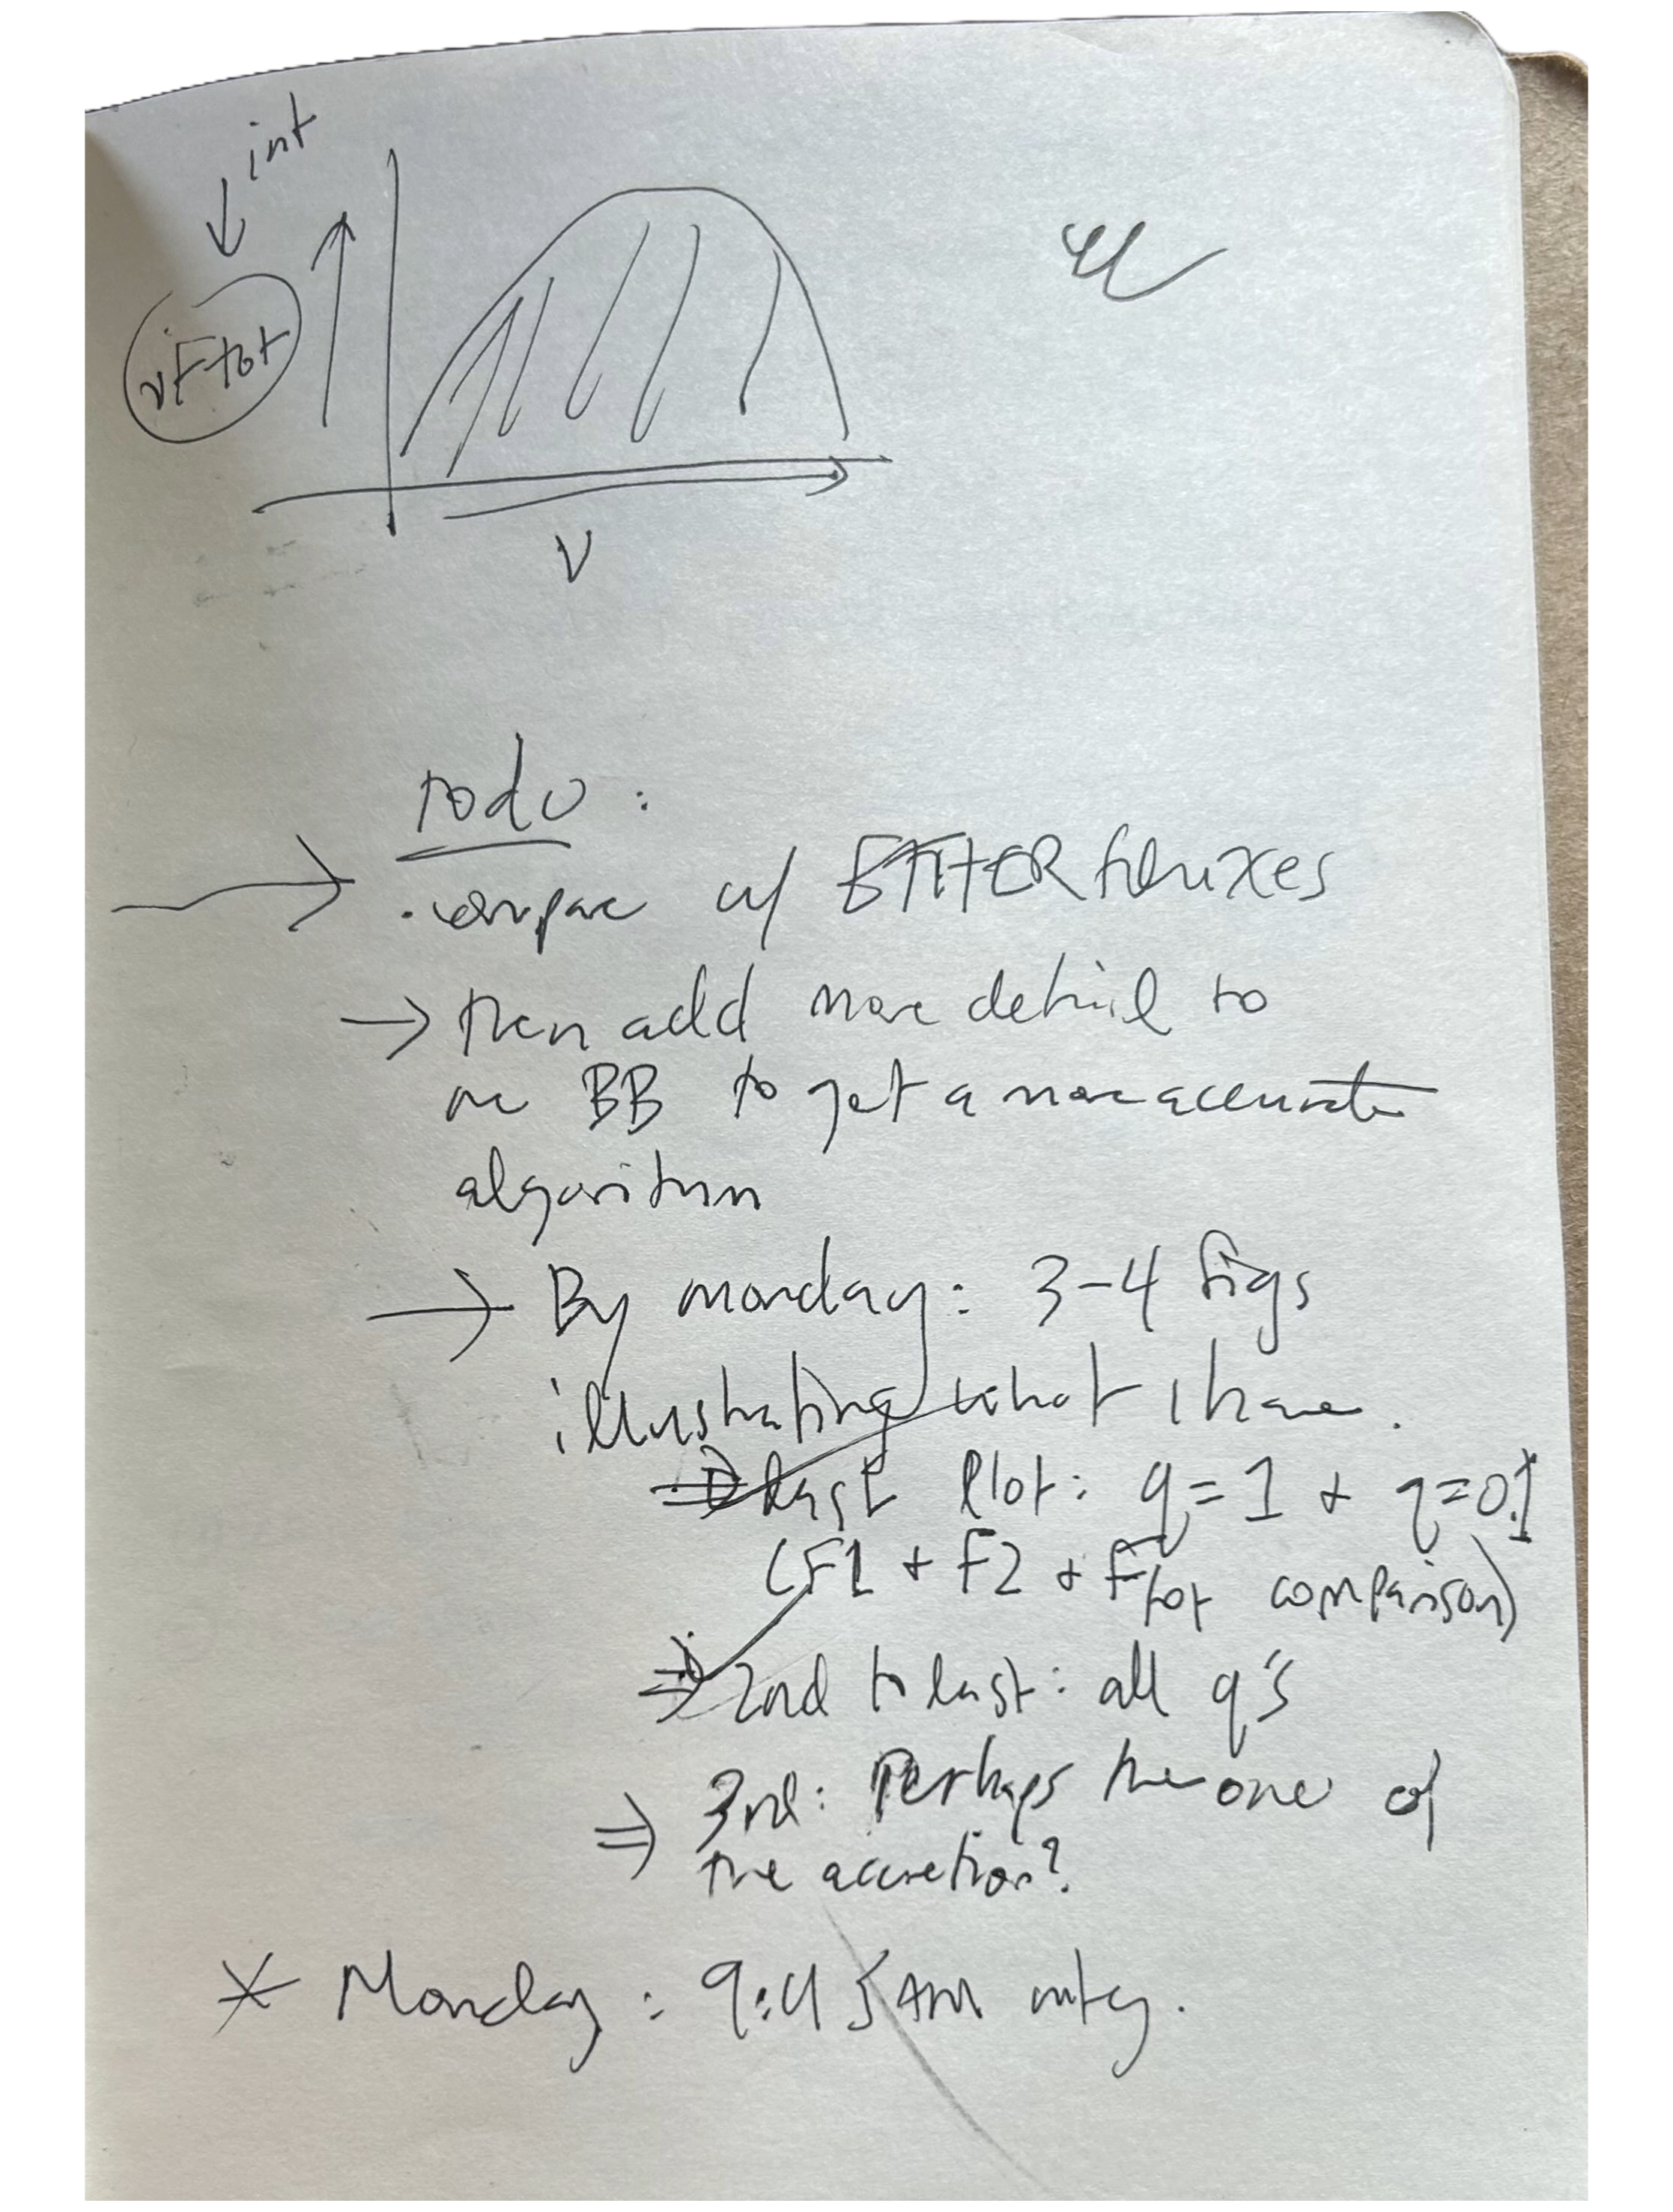 int
νFtot
ν
todo:
· compare w/ fluxes
→ then add more detail to
the BB to get a more accurate
algorithm
→ By monday: 3-4 figs
illustrating what I have.
⇒ last plot: q=1 + q=0.1
(F1 + F2 + Ftot comparison)
⇒ 2nd to last: all q's
⇒ 3rd: Perhaps the one of
the accretion?
* Monday: 9:45 AM mtg.